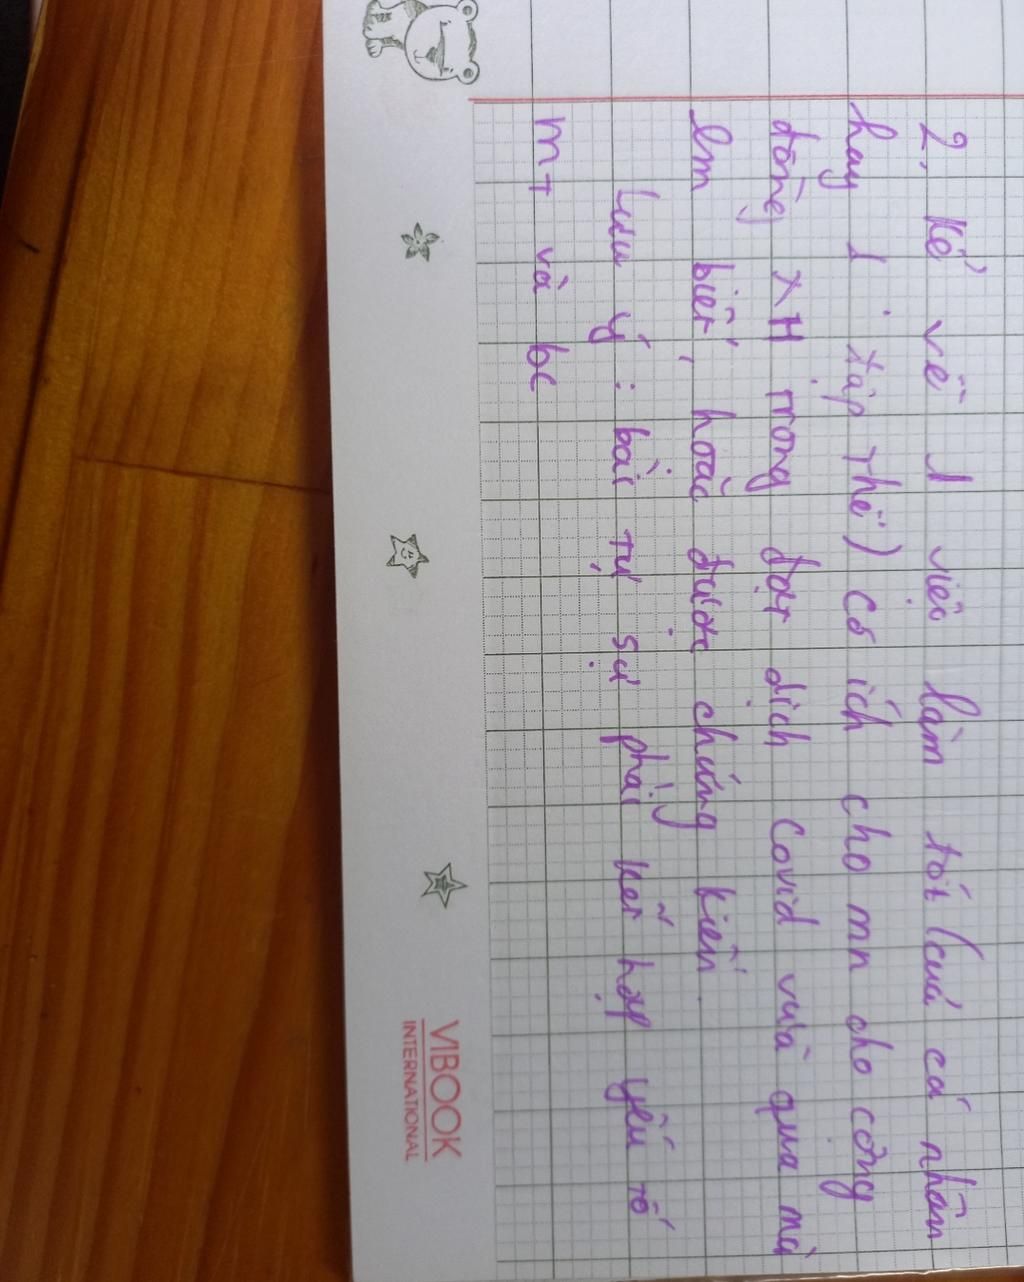 2, Kể về 1 việc làm tốt (của cá nhân
hay 1 tập thể) có ích cho mn cho cộng
đồng XH trong đợt dịch Covid vừa qua mà
Em biết, hoặc được chứng kiến.
Lưu ý: bài tự sự phải kết hợp yếu tố
mt và bc
VIBOOK
INTERNATIONAL